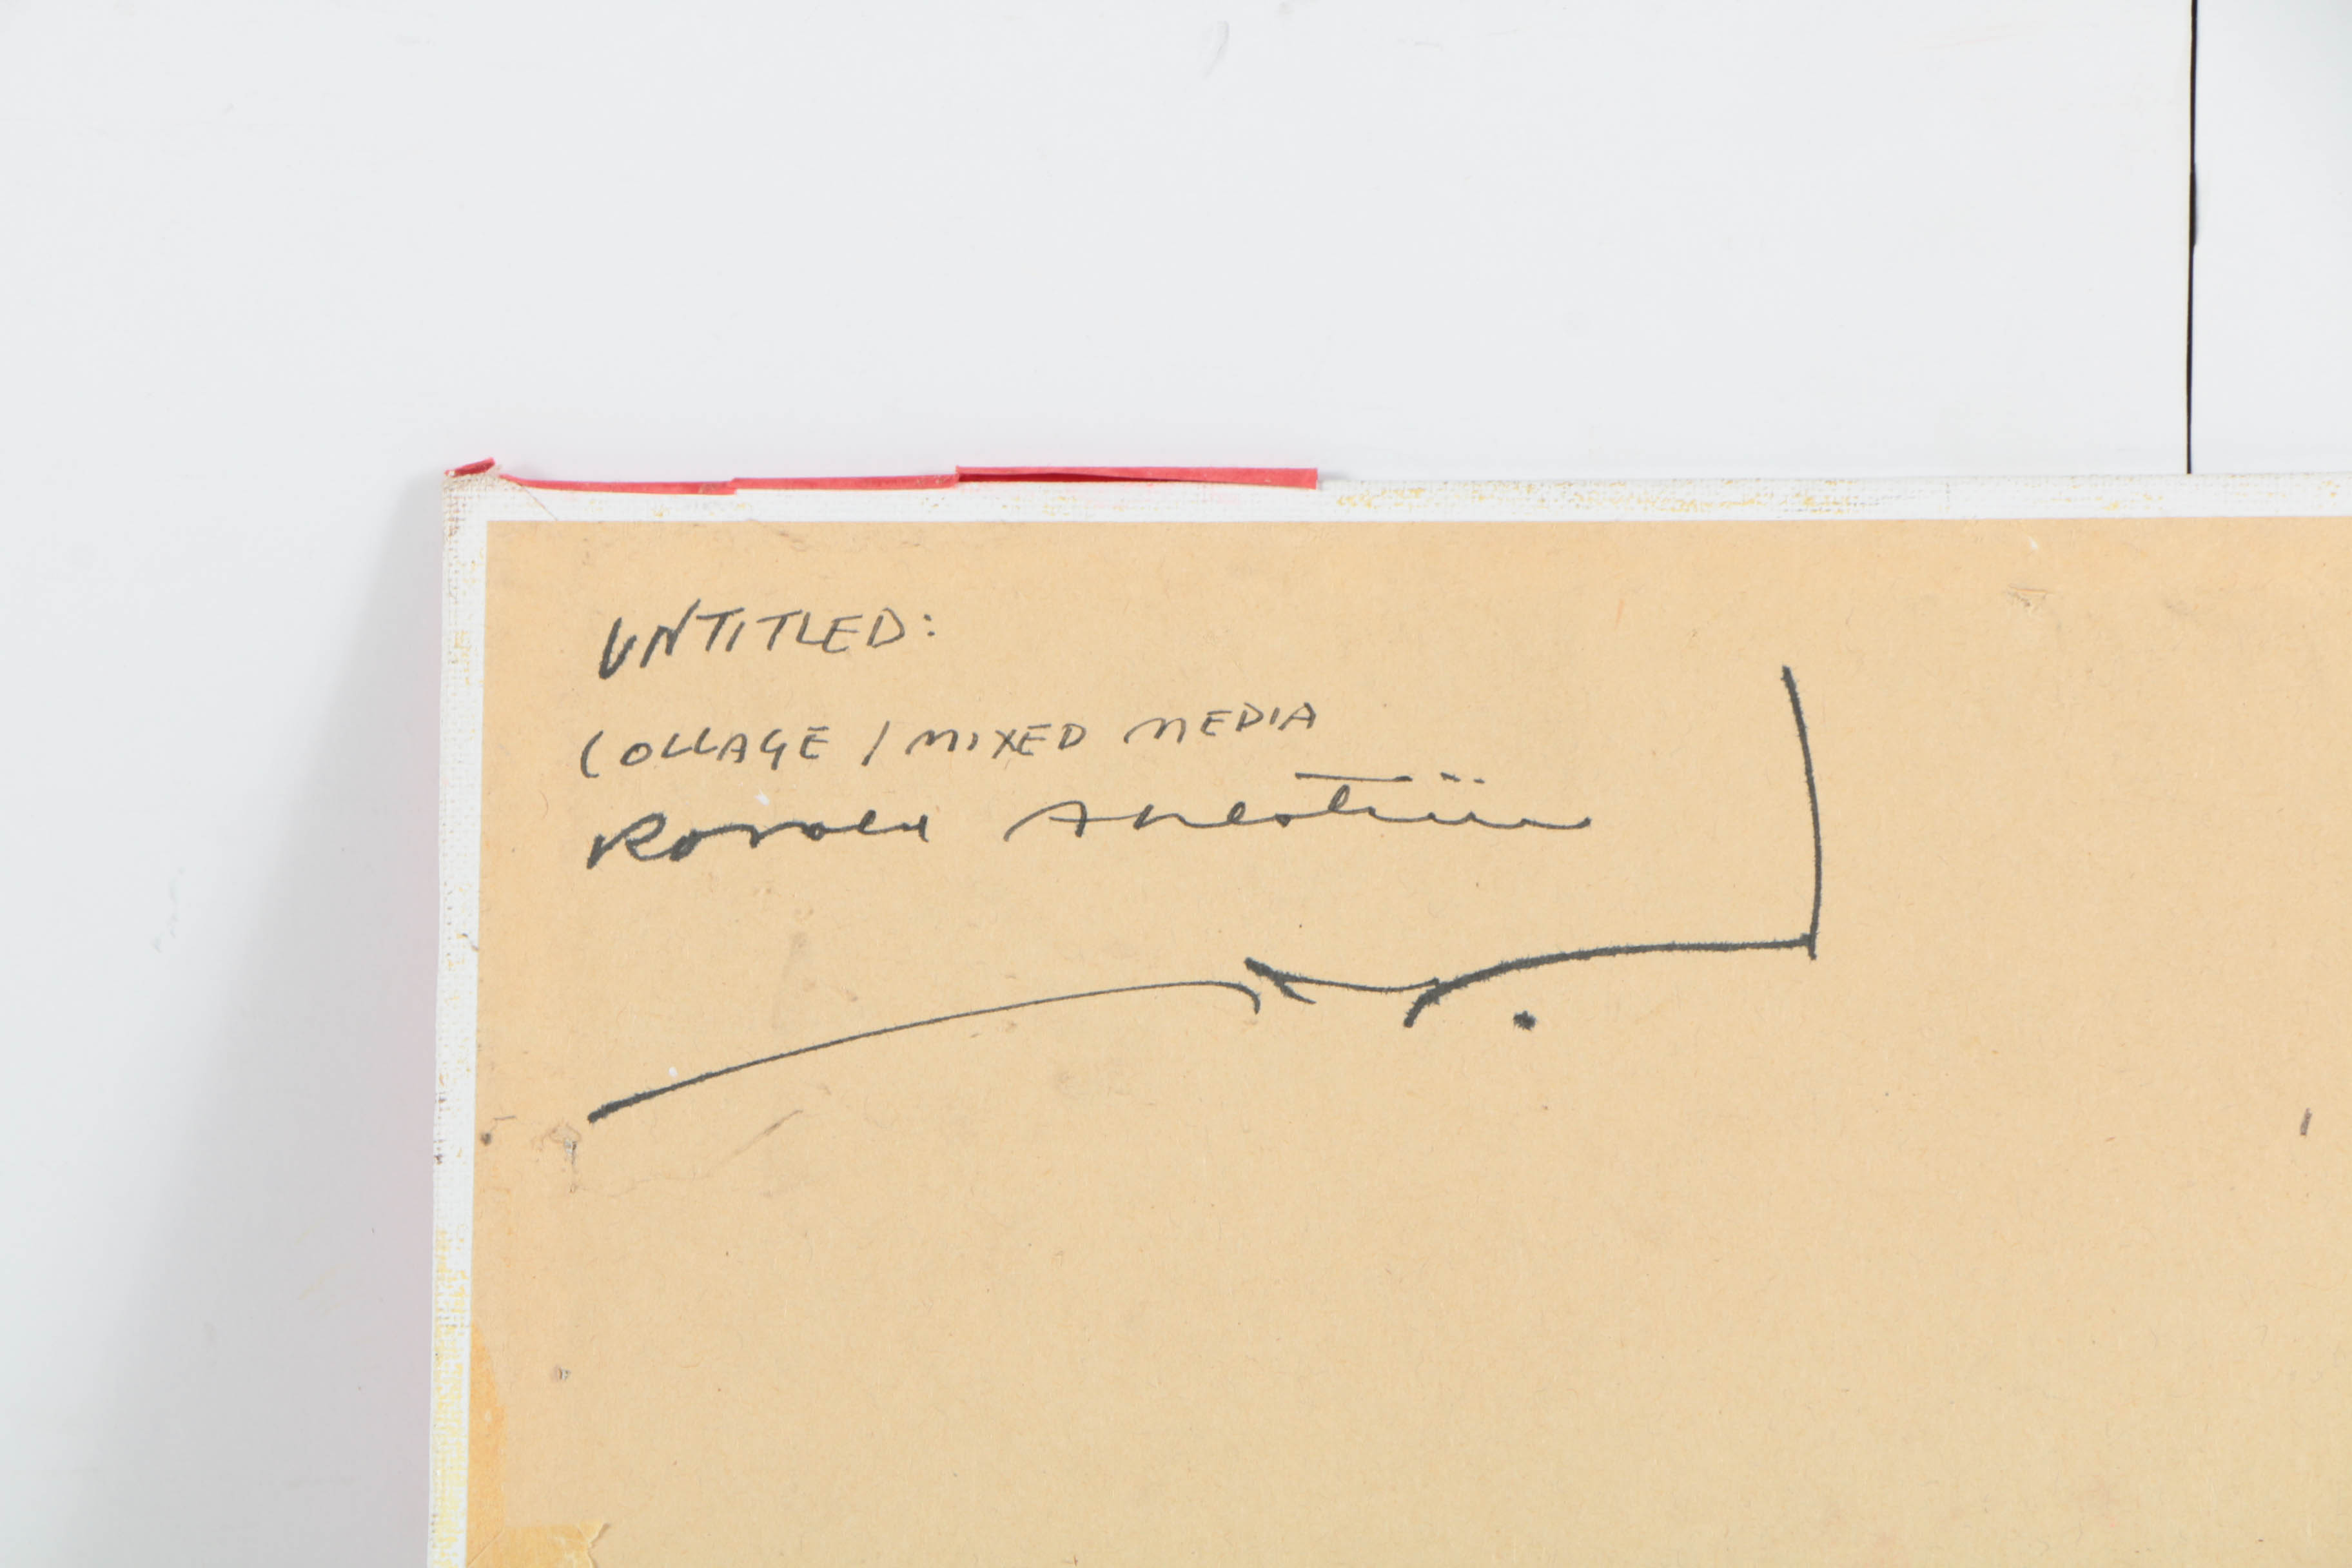 UNTITLED:
COLLAGE / MIXED MEDIA
Ronald